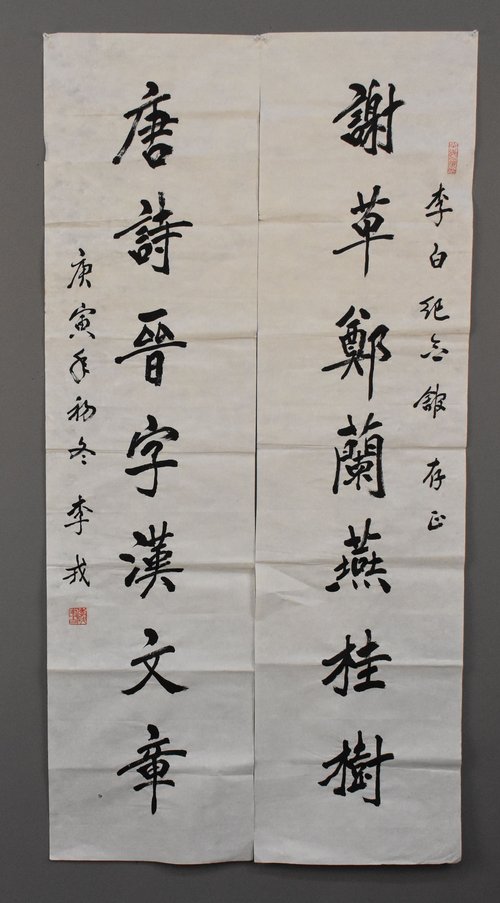 李白紀念舘存正
謝草鄭蘭燕桂樹
唐詩晉字漢文章
庚寅年初冬 李戎